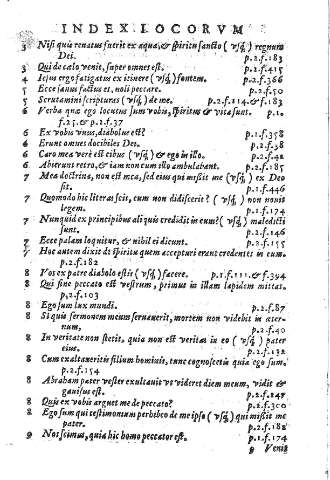 INDEX LOCORVM
3 Nisi quis renatus fuerit ex aqua, & spiritu sancto ( vsq3 ) regnum
Dei. p.2.f.183
3 Qui de cælo venit, super omnes est. p.2.f.415
4 Iesus ergo fatigatus ex itinere ( vsq3 ) fontem. p.2.f.366
5 Ecce sanus factus es, noli peccare. p.2.f.50
5 Scrutamini scripturas ( vsq3 ) de me. p.2.f.114.&f.183
6 Verba quæ ego locutus sum vobis, spiritus & vita sunt. p.1.
f.25. & p.1.f.37
6 Ex vobis vnus, diabolus est? p.1.f.358
6 Erunt omnes docibiles Dei. p.2.f.38
6 Caro mea verè est cibus ( vsq3 ) & ego in illo. p.2.f.42
6 Abierunt retro, & iam non cum illo ambulabant. p.2.f.185
7 Mea doctrina, non est mea, sed eius qui misit me ( vsq3 ) ex Deo
sit. p.1.f.446
7 Quomodo hic literas scit, cum non didiscerit? ( vsq3 ) non nouit
legem. p.1.f.174
7 Nunquid ex principibus aliquis credidit in eum? ( vsq3 ) maledicti
sunt. p.2.f.146
7 Ecce palam loquitur, & nihil ei dicunt. p.2.f.155
7 Hoc autem dixit de spiritu quem accepturi erant credentes in eum.
p.2.f.182
8 Vos ex patre diabolo estis ( vsq3 ) facere. p.1.f.111.& f.394
8 Qui sine peccato est vestrum, primus in illam lapidem mittat.
p.2.f.103
8 Ego sum lux mundi. p.2.f.87
8 Si quis sermonem meum seruauerit, mortem non videbit in æter-
num. p.2.f.40
8 In veritate non stetit, quia non est veritas in eo ( vsq3 ) pater
eius. p.2.f.132
8 Cum exaltaueritis filium hominis, tunc cognoscetis quia ego sum.
p.2.f.154
8 Abraham pater vester exultauit vt videret diem meum, vidit &
gauisus est. p.2.f.247
8 Quis ex vobis arguet me de peccato? p.2.f.300
8 Ego sum qui testimonium perhibeo de me ipso ( vsq3 ) qui misit me
pater. p.2.f.182
9 Nos scimus, quia hic homo peccator est. p.1.f.174
9 Venit